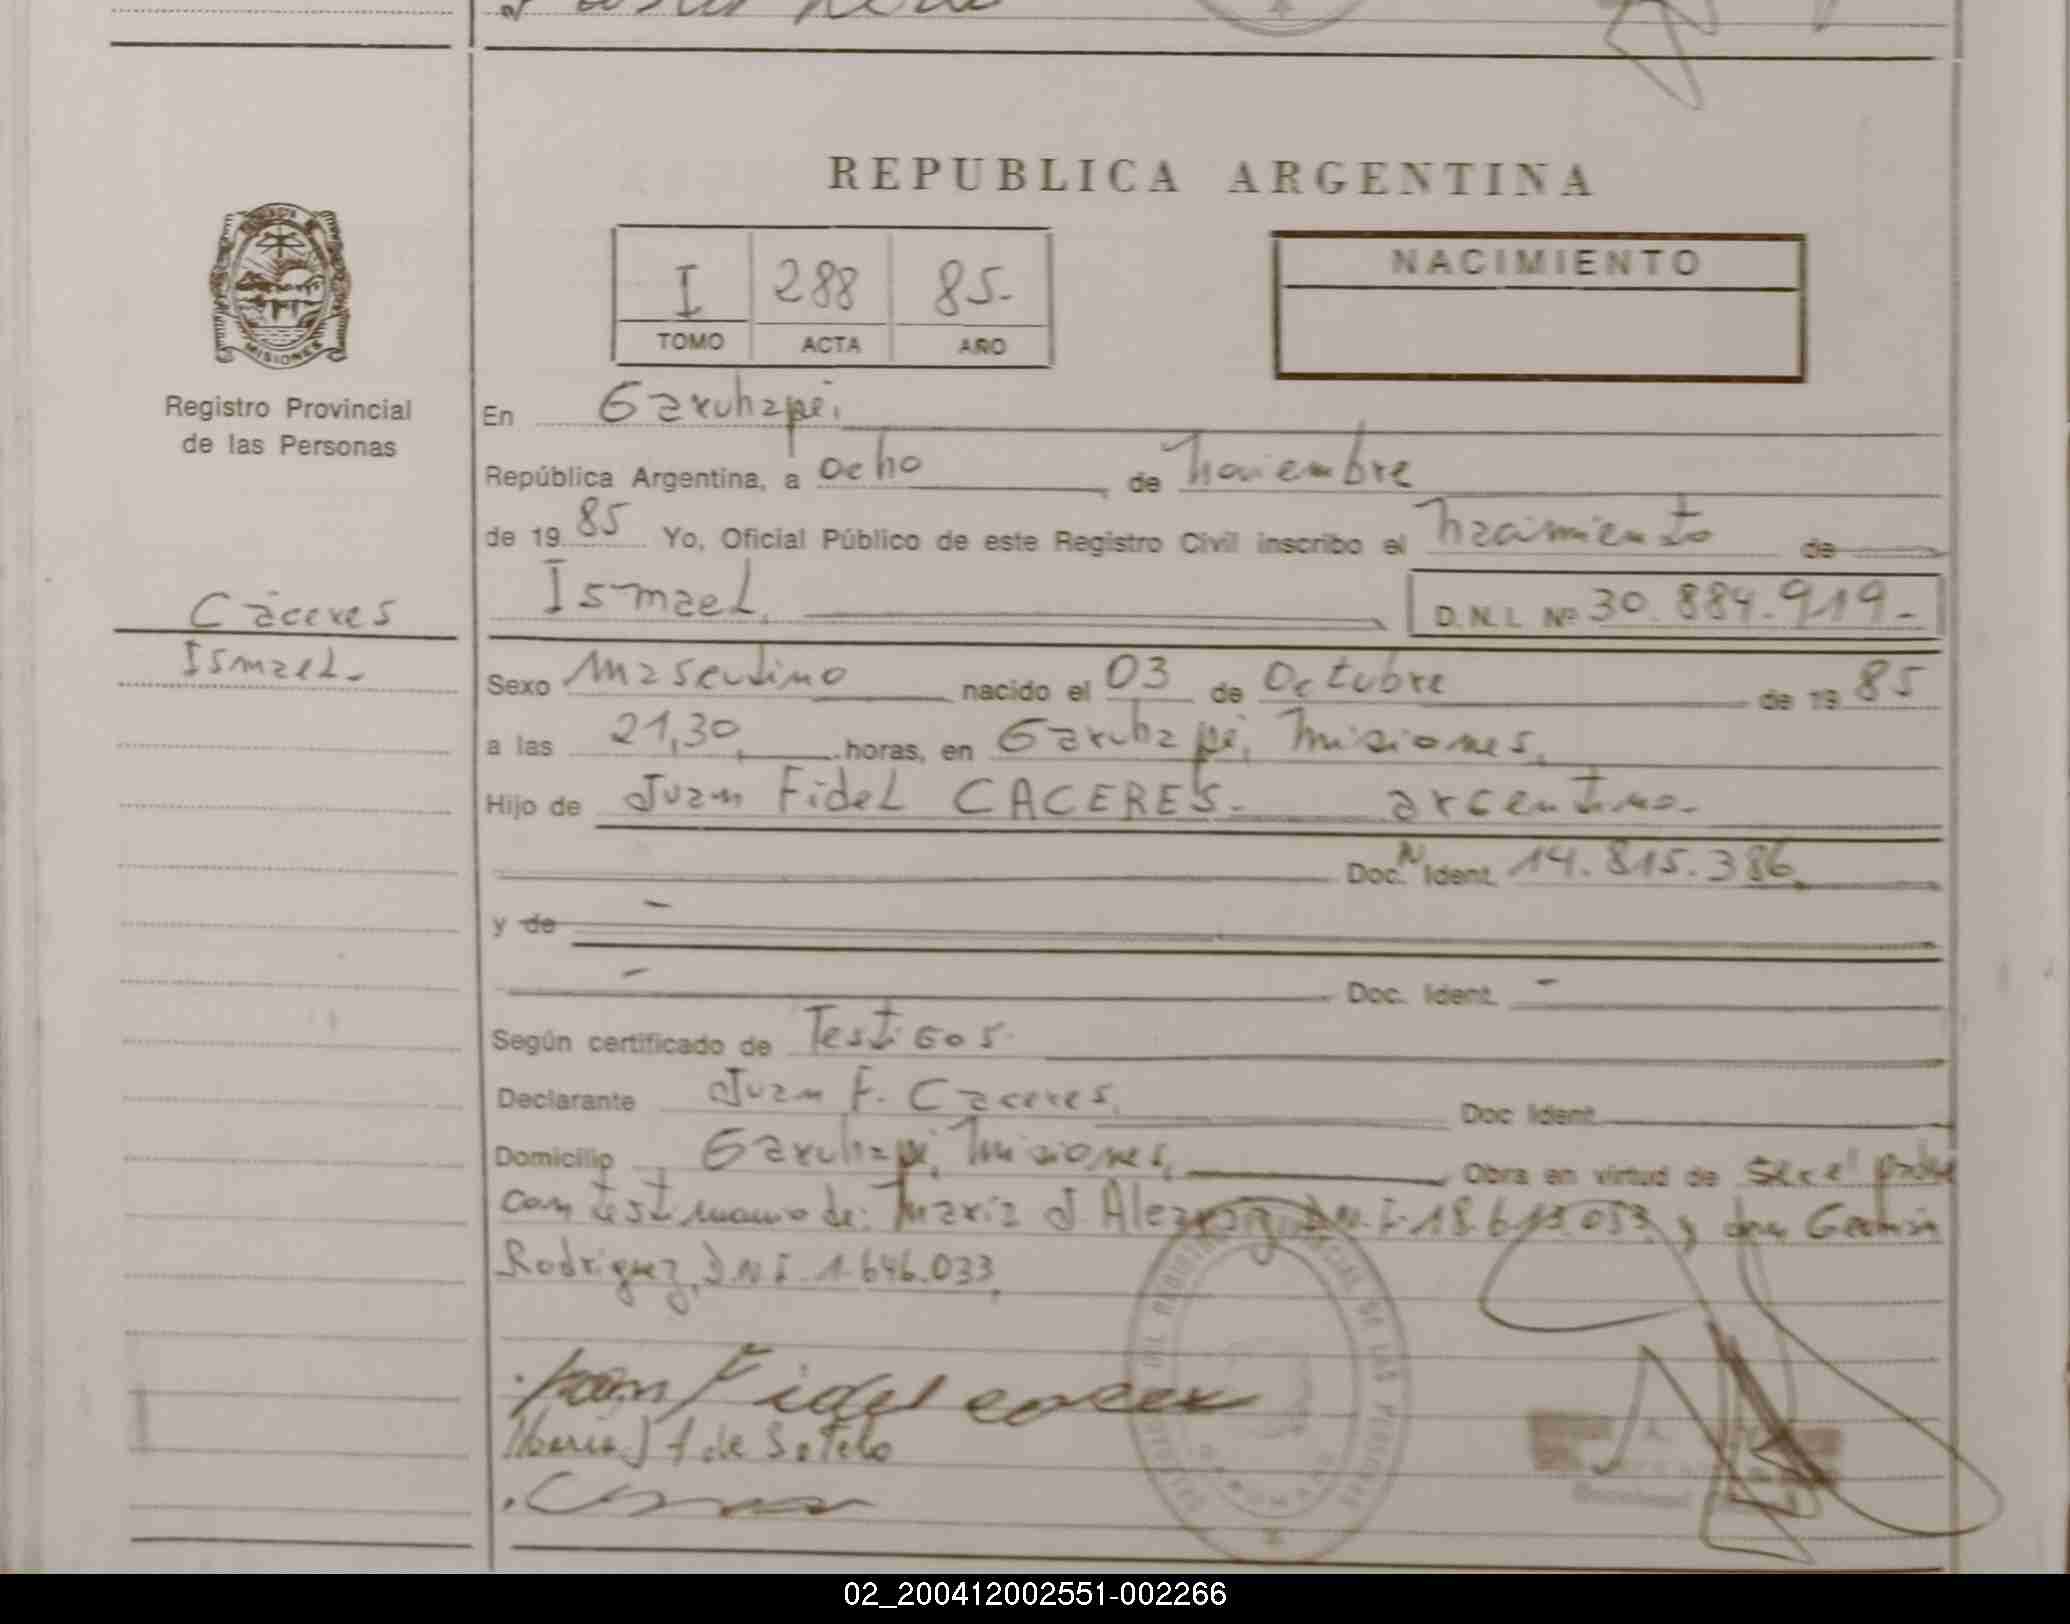 REPUBLICA ARGENTINA
I 288 85-
TOMO ACTA AÑO
NACIMIENTO
MISIONES
Registro Provincial
de las Personas
Càceres
Ismael-
En Garuhapé,
República Argentina, a ocho de Noviembre
de 19 85 Yo, Oficial Público de este Registro Civil inscribo el Nacimiento de
Ismael, D.N.I. Nº 30.884.919-
Sexo Masculino nacido el 03 de Octubre de 19 85
a las 21,30, horas, en Garuhapé, Misiones,
Hijo de Juan Fidel CACERES- argentino-
Doc. N Ident. 14.815.386,
y de -
- Doc. Ident. -
Según certificado de Testigos-
Declarante Juan F. Caceres, Doc Ident.
Domicilio Garuhapé, Misiones, Obra en virtud de Ser el padre
con testimonio de: Maria J. D.N.I. 18.613.053, y
Rodriguez, D.N.I. 1.646.033,
Juan Fidel
de Sotelo
02_200412002551-002266